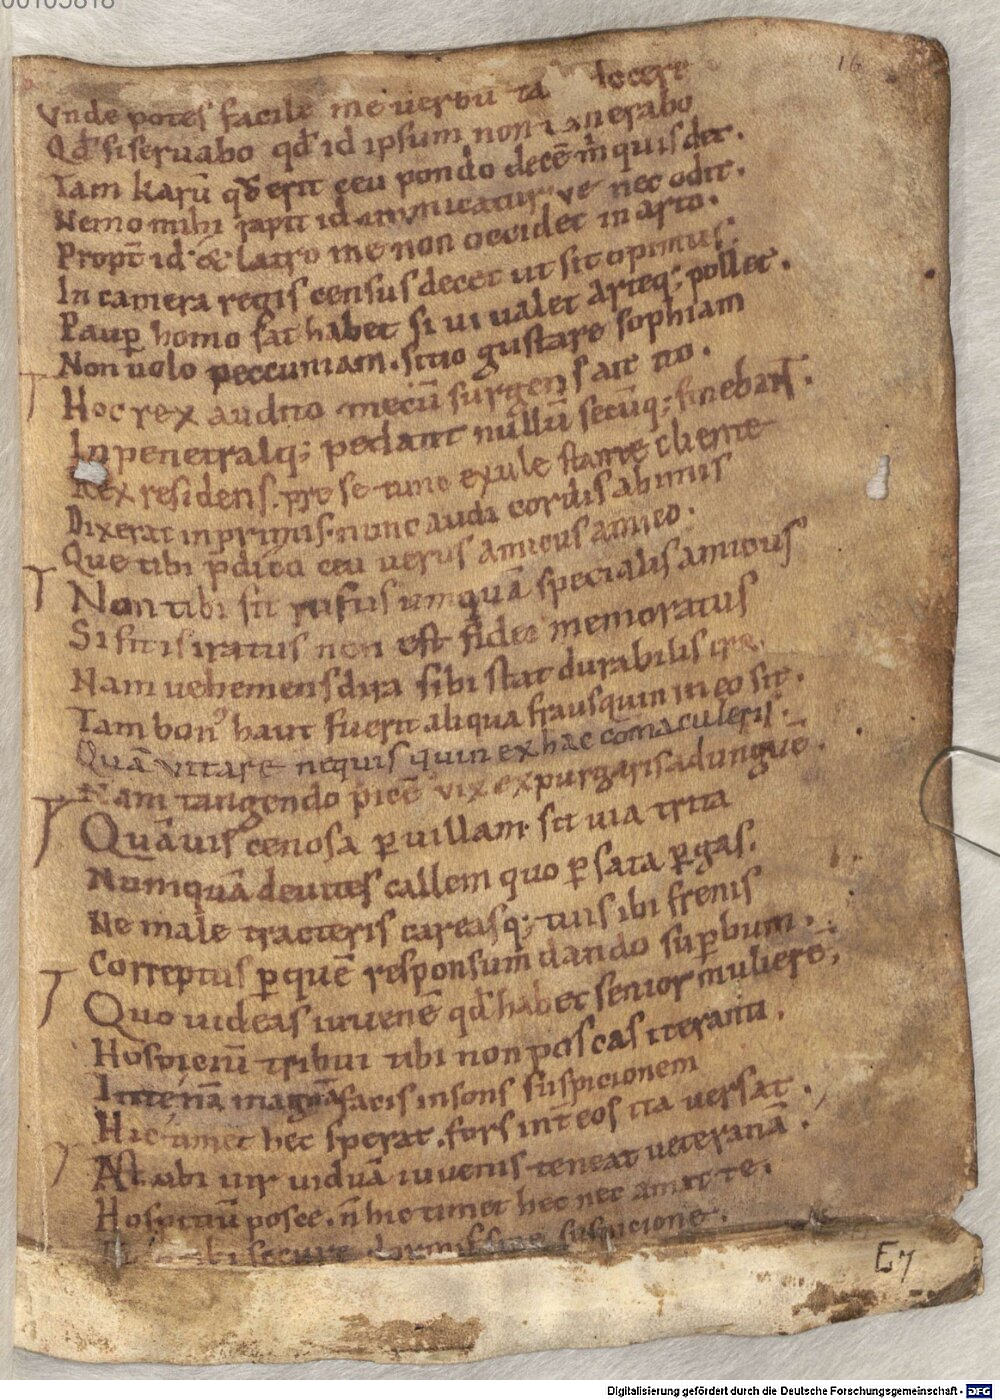 00105818
16
Vnde potes facile me uerbu ta locere
Qđ si seruabo qđ id ipsum non
Tam karū qđ erit ceu pondo decē m̄ quis det.
Nemo mihi rapit id ve nec odit.
Propt̄ id & latro me non occidet in arto.
In camera regis census decet ut sit opimus.
Paup̱ homo sat habet si ui ualet arteq; pollet.
Non uolo peccuniam. sitio gustare sophiam
Hoc rex audito mecū surgens ait ito.
In penetralq; pedant nullū secūq; sinebant.
Rex residens. pre se tunc exule stante cliente
Dixerat in primis. nunc audi cordis ab imis
Que tibi p̄dico ceu uerus amicus amico.
Non tibi sit rufus umquā specialis amicus
Si fit is iratus non est fidei memoratus
Nam uehemens dira sibi stat durabilis ira.
Tam bonꝰ haut fuerit aliqua fraus quin in eo sit.
Quā vitare nequis quin ex hac comaculeris.
Nam tangendo picē vix expurgaris ad unguē.
Quāuis cenosa p̱ uillam. sit uia trita
Numquā deuites callem quo p̱ sata p̱gas.
Ne male tracteris careasq; tuis ibi frenis
Correptus p̱ quē responsum dando sup̱bum.
Quo uideas iuuenē qđ habet senior mulierē.
Hospiciū tribui tibi non poscas iteranti.
In tē nā magnā facis insons suspicionem
Hic timet hec sperat. fors int̄ eos ita uersat.
Ast ubi uir uiduā iuuenis teneat ueteranā.
Hospitiū posce. n̄ hic timet hec nec amat te.
ibi secure dormis sine suspicione.
E7
Digitalisierung gefördert durch die Deutsche Forschungsgemeinschaft - DFG